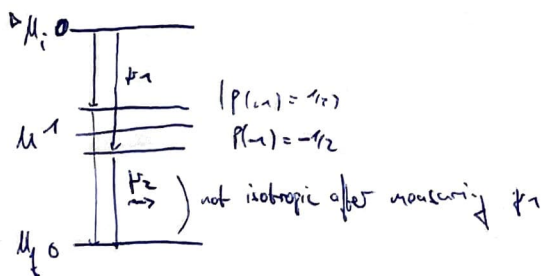 M_i 0
γ1
P(+1) = 1/2
M 1
P(-1) = -1/2
γ2
not isotropic after measuring γ1
M_f 0